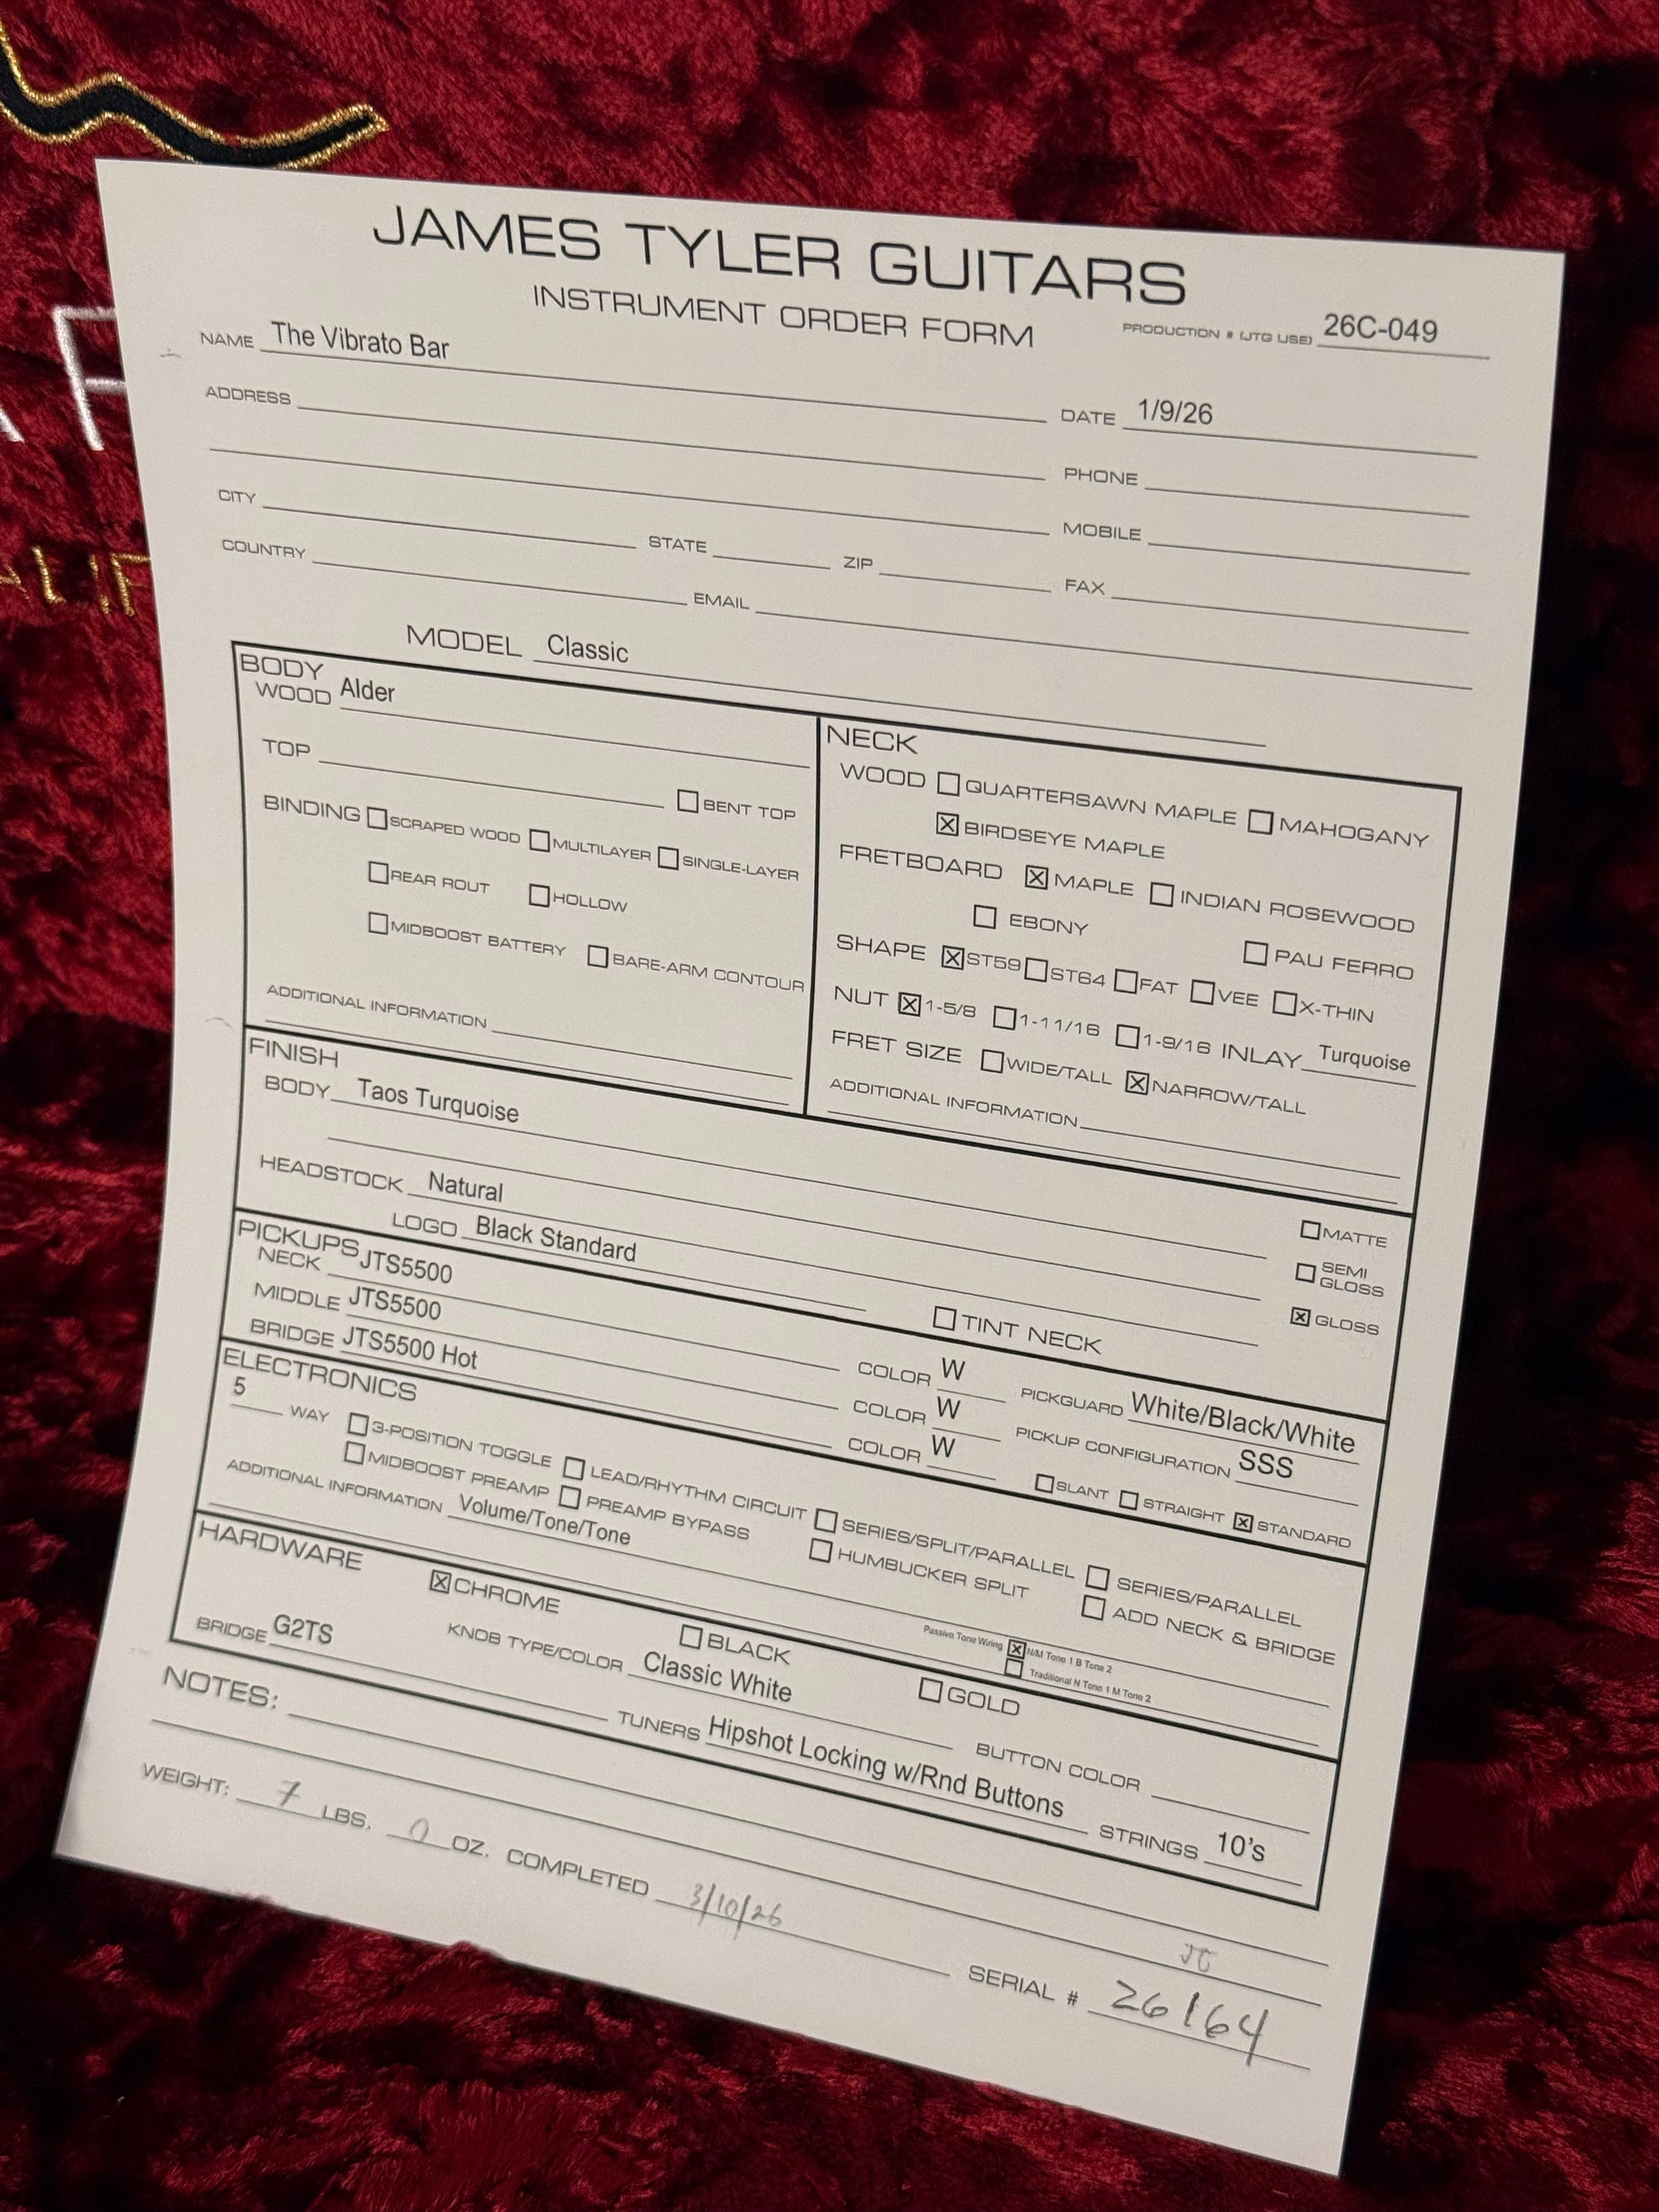 JAMES TYLER GUITARS
INSTRUMENT ORDER FORM
PRODUCTION # (JTG USE) 26C-049
NAME The Vibrato Bar
ADDRESS
DATE 1/9/26
PHONE
CITY
MOBILE
STATE
ZIP
FAX
COUNTRY
EMAIL
MODEL Classic
BODY
WOOD Alder
TOP
BENT TOP
BINDING SCRAPED WOOD MULTILAYER SINGLE-LAYER
REAR ROUT HOLLOW
MIDBOOST BATTERY BARE-ARM CONTOUR
ADDITIONAL INFORMATION
NECK
WOOD QUARTERSAWN MAPLE MAHOGANY
☒ BIRDSEYE MAPLE
FRETBOARD ☒ MAPLE INDIAN ROSEWOOD
EBONY PAU FERRO
SHAPE ☒ ST59 ST64 FAT VEE X-THIN
NUT ☒ 1-5/8 1-11/16 1-9/16 INLAY Turquoise
FRET SIZE WIDE/TALL ☒ NARROW/TALL
ADDITIONAL INFORMATION
FINISH
BODY Taos Turquoise
HEADSTOCK Natural
LOGO Black Standard
TINT NECK
MATTE
SEMI GLOSS
☒ GLOSS
PICKUPS
NECK JTS5500 COLOR W PICKGUARD White/Black/White
MIDDLE JTS5500 COLOR W PICKUP CONFIGURATION SSS
BRIDGE JTS5500 Hot COLOR W SLANT STRAIGHT ☒ STANDARD
ELECTRONICS
5 WAY 3-POSITION TOGGLE LEAD/RHYTHM CIRCUIT SERIES/SPLIT/PARALLEL SERIES/PARALLEL
MIDBOOST PREAMP PREAMP BYPASS HUMBUCKER SPLIT ADD NECK & BRIDGE
ADDITIONAL INFORMATION Volume/Tone/Tone
Passive Tone Wiring ☒ N/M Tone 1 B Tone 2
Traditional N Tone 1 M Tone 2
HARDWARE
☒ CHROME BLACK GOLD
BRIDGE G2TS KNOB TYPE/COLOR Classic White BUTTON COLOR
TUNERS Hipshot Locking w/Rnd Buttons STRINGS 10's
NOTES:
WEIGHT: 7 LBS. 0 OZ. COMPLETED 3/10/26
SERIAL # 26164